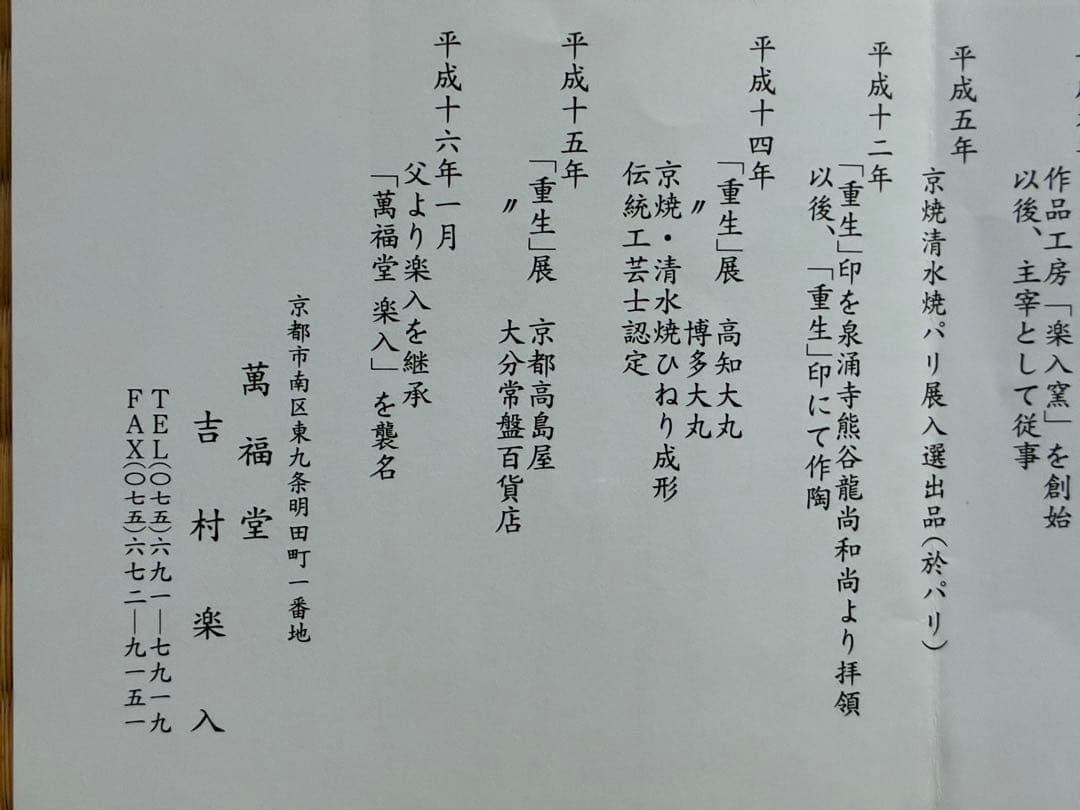 作品工房「楽入窯」を創始
以後、主宰として従事
平成五年
京焼清水焼パリ展入選出品(於パリ)
平成十二年
「重生」印を泉涌寺熊谷龍尚和尚より拝領
以後、「重生」印にて作陶
平成十四年
「重生」展 高知大丸
〃 博多大丸
京焼・清水焼ひねり成形
伝統工芸士認定
平成十五年
「重生」展 京都高島屋
〃 大分常盤百貨店
平成十六年一月
父より楽入を継承
「萬福堂 楽入」を襲名
京都市南区東九条明田町一番地
萬福堂
吉村楽入
TEL(〇七五)六九一―七九一九
FAX(〇七五)六七二―九一五一